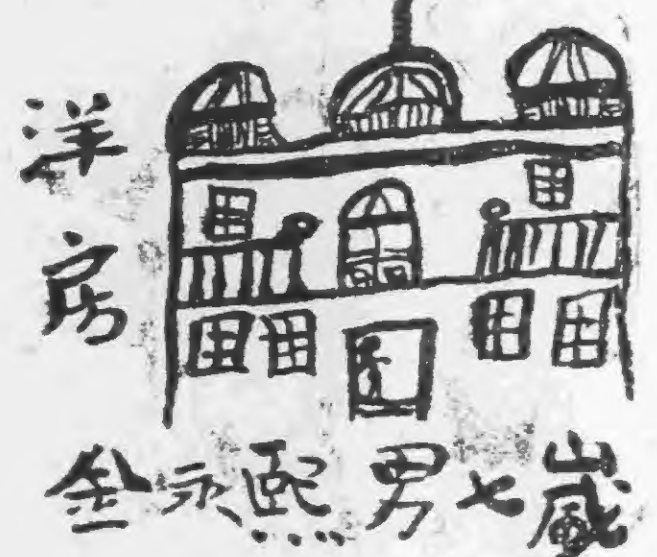 洋房
金永熙男七歲